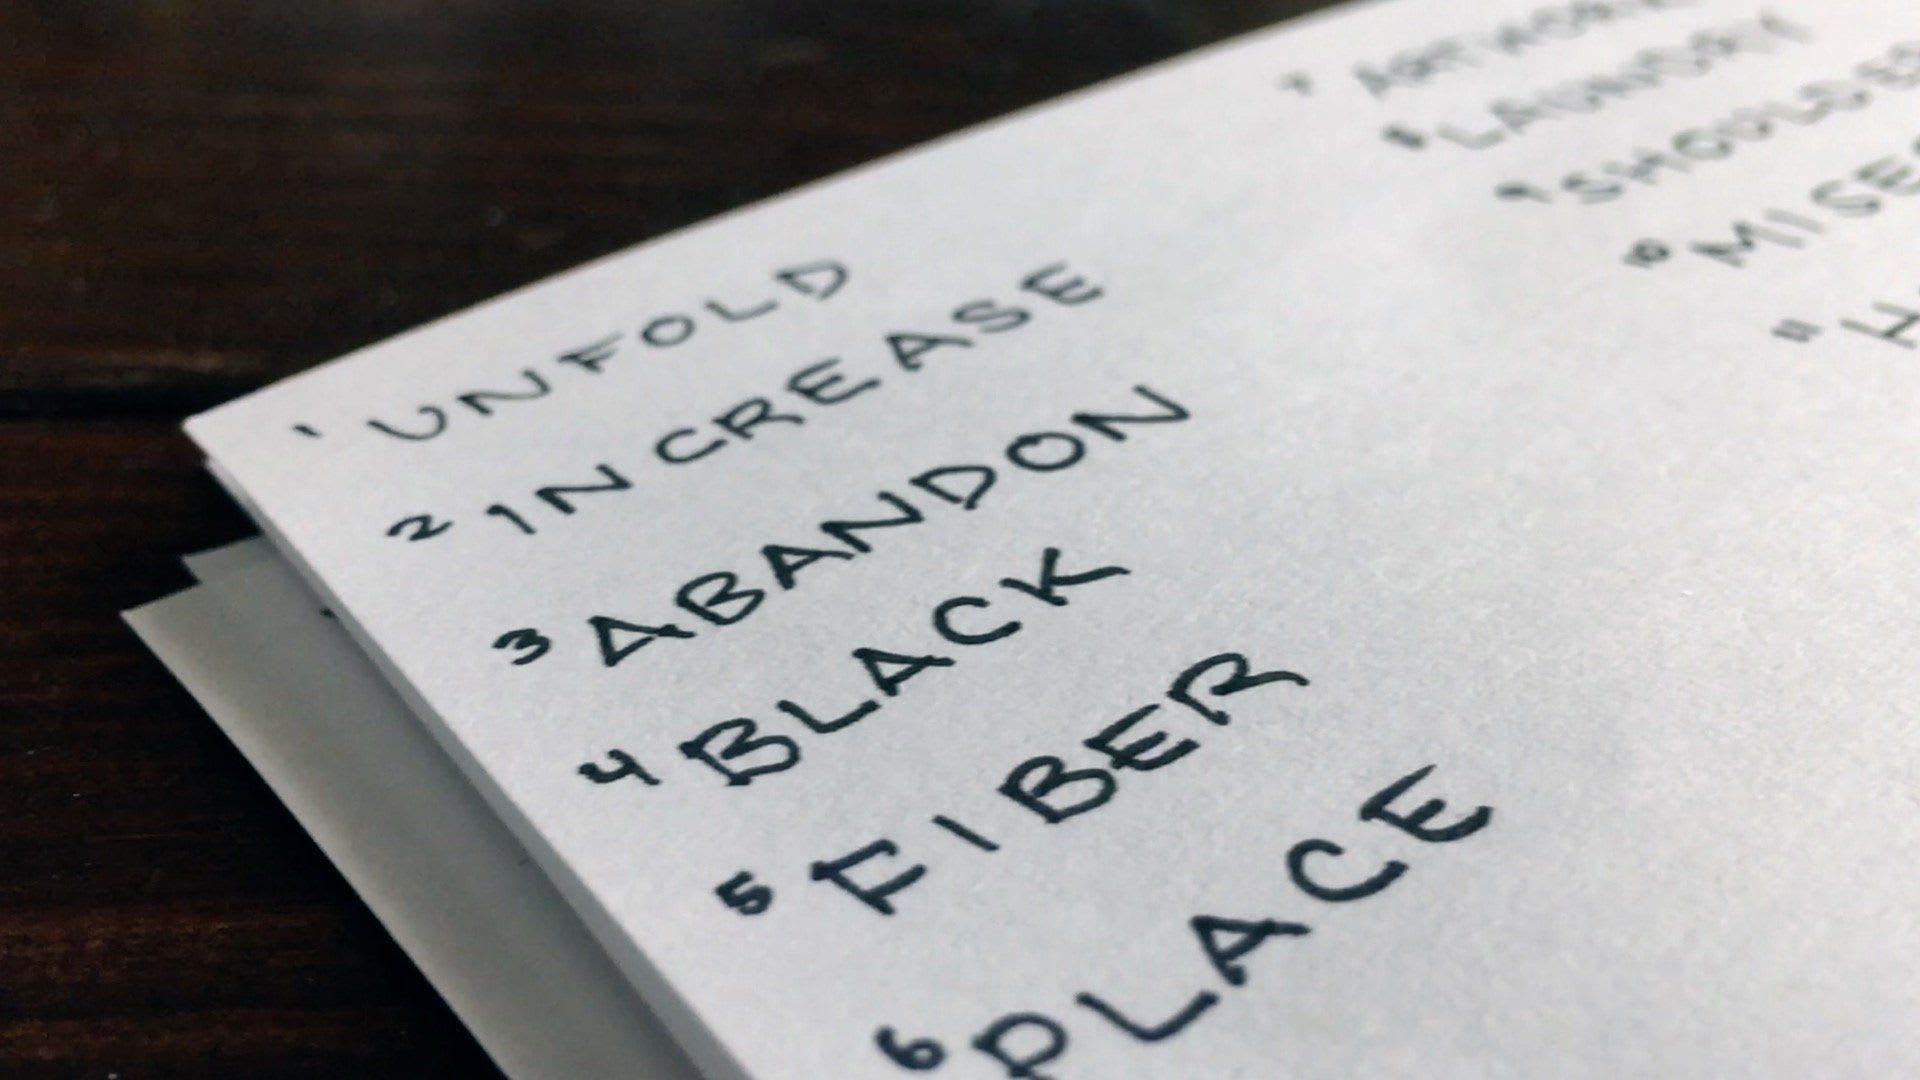 1 UNFOLD
2 INCREASE
3 ABANDON
4 BLACK
5 FIBER
6 PLACE
7 ARTWORK
8 LAUNDRY
9 SHOULDE
10 MISE
11 H